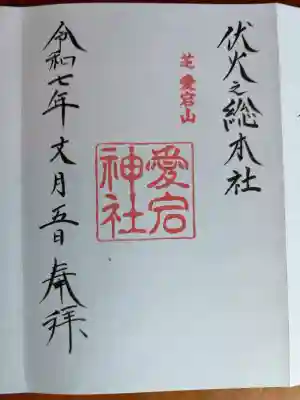 伏火之総本社
芝 愛宕山
愛宕神社
令和七年文月五日奉拝